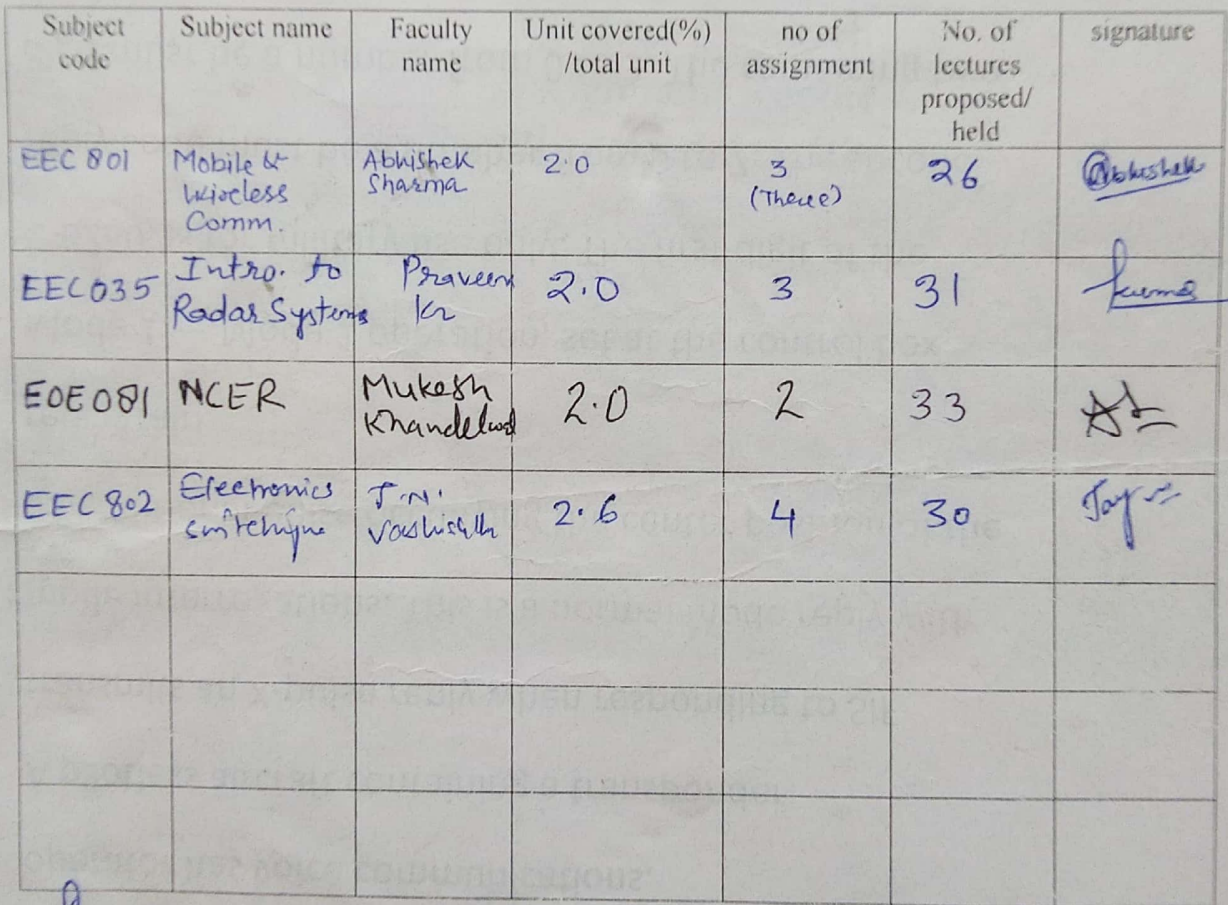 Subject code
Subject name
Faculty name
Unit covered(%) /total unit
no of assignment
No. of lectures proposed/ held
signature
EEC 801
Mobile & Wireless Comm.
Abhishek Sharma
2.0
3 (Theree)
26
Abhishek
EEC035
Intro. to Radar Systems
Praveen Kr
2.0
3
31
Kumar
EOE081
NCER
Mukesh Khandelwal
2.0
2
33
EEC 802
Electronics switching
J.N. Vashishth
2.6
4
30